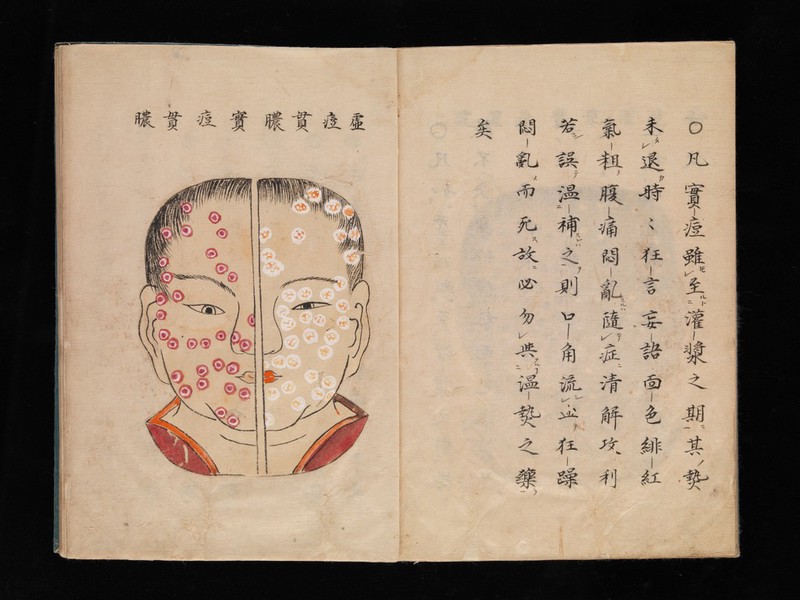 〇凡實痘雖至灌漿之期其熱
未退時〻狂言妄語面色緋紅
氣粗腹痛悶亂隨症清解攻利
若誤温補之則口角流血狂躁
悶亂而死故必勿與温熱之藥
矣
虚痘貫膿 實痘貫膿